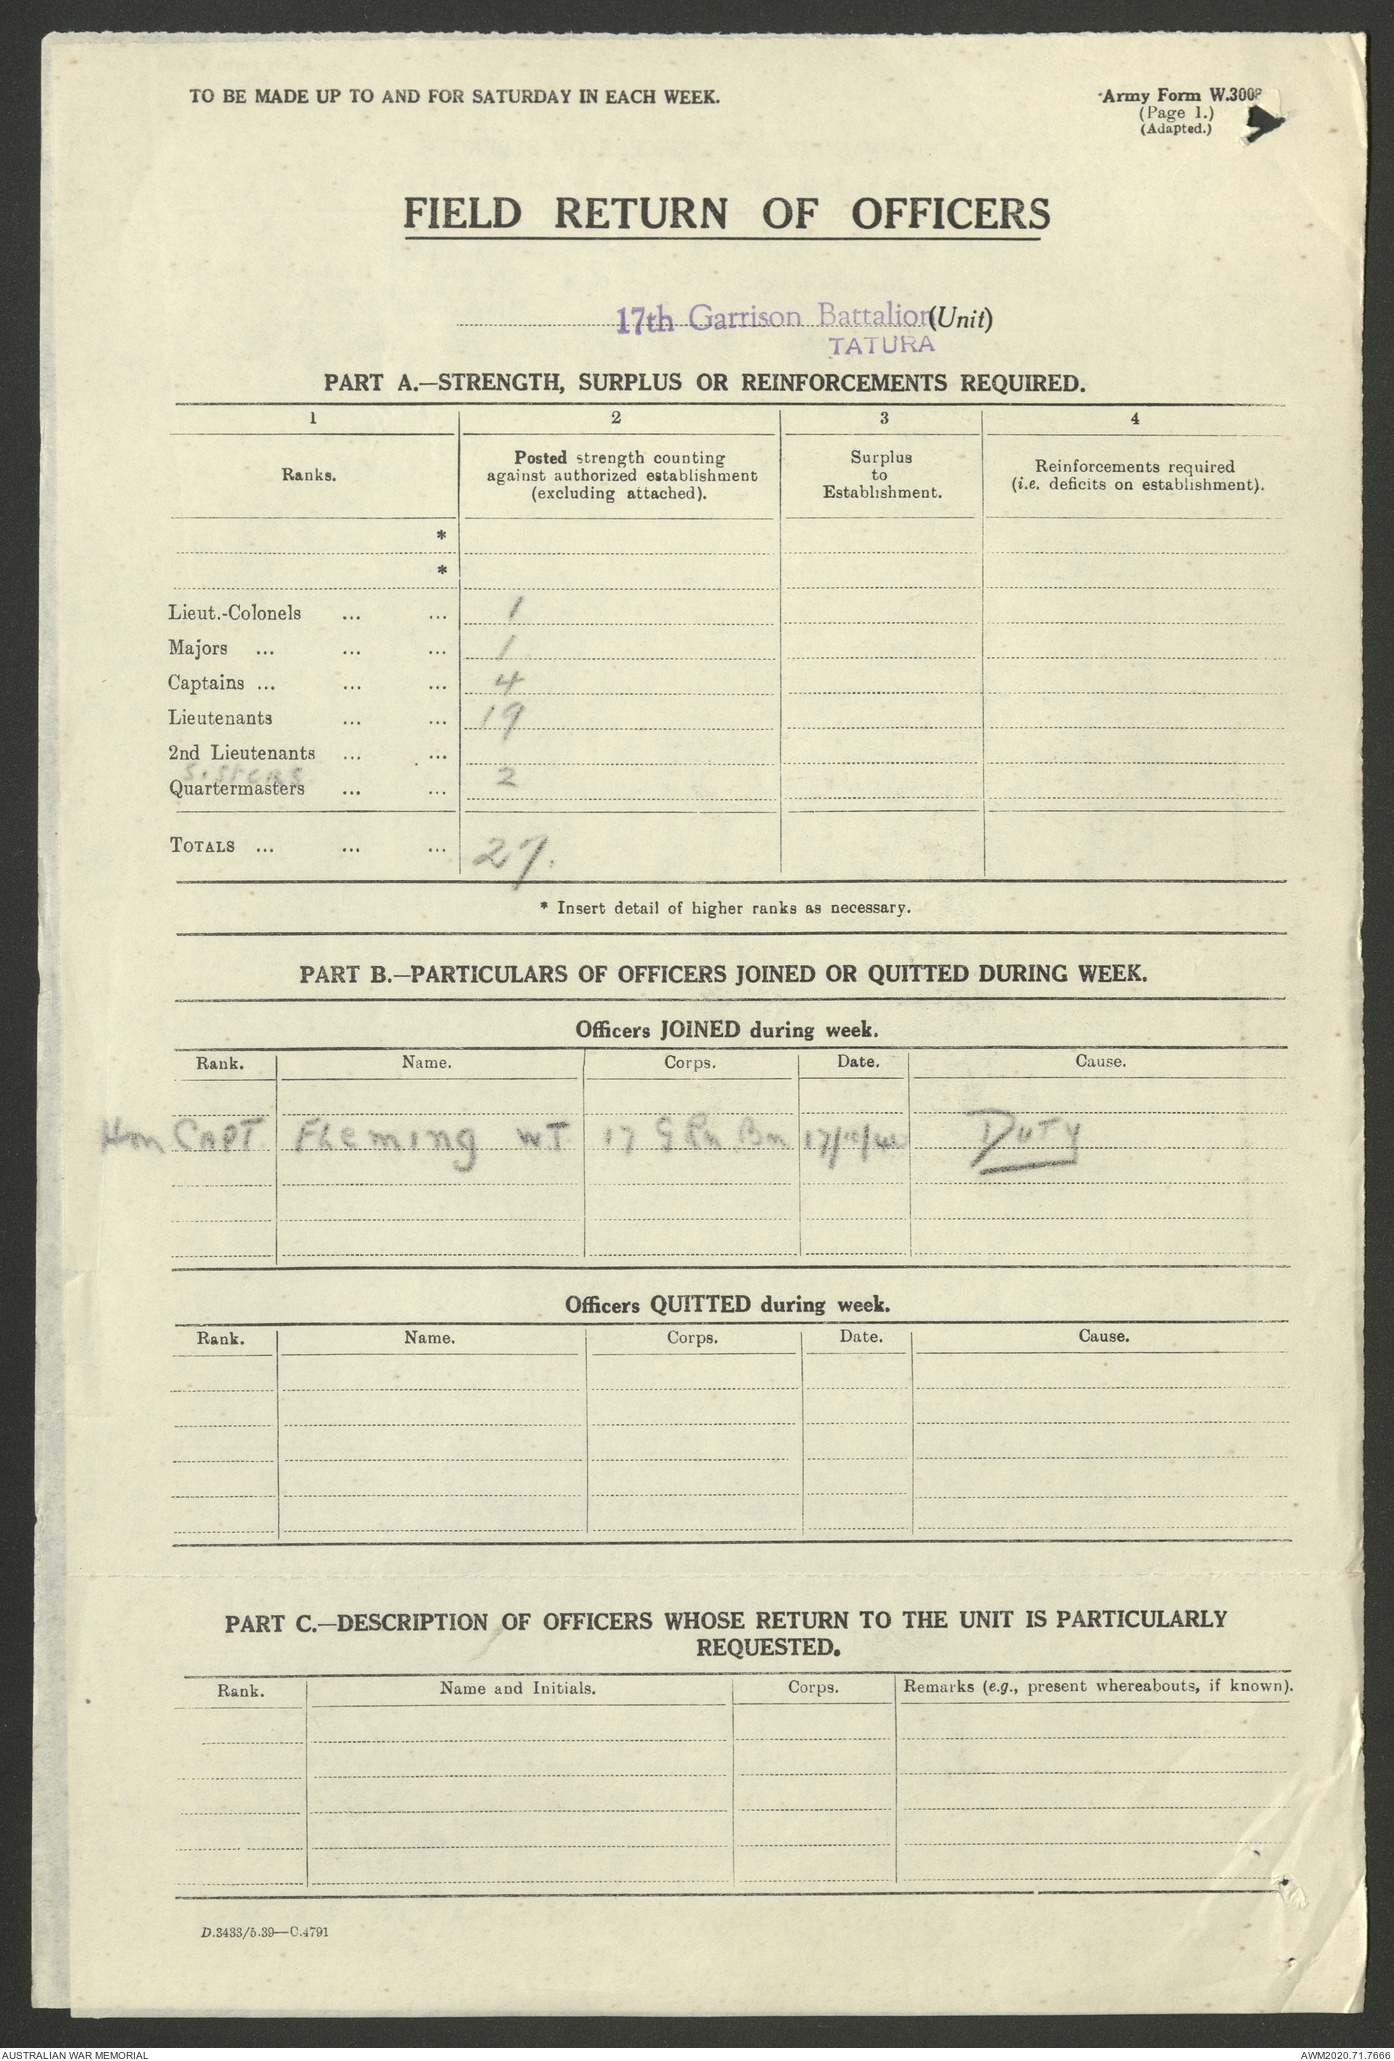 TO BE MADE UP TO AND FOR SATURDAY IN EACH WEEK.
Army Form W.3008
(Page 1.)
(Adapted.)
FIELD RETURN OF OFFICERS
17th Garrison Battalion (Unit)
TATURA
PART A.—STRENGTH, SURPLUS OR REINFORCEMENTS REQUIRED.
1 2 3 4
Ranks. Posted strength counting against authorized establishment (excluding attached). Surplus to Establishment. Reinforcements required (i.e. deficits on establishment).
*
*
Lieut.-Colonels ... ... 1
Majors ... ... ... 1
Captains ... ... ... 4
Lieutenants ... ... 19
2nd Lieutenants ... ...
Sisters 2
Quartermasters ... ...
TOTALS ... ... ... 27.
* Insert detail of higher ranks as necessary.
PART B.—PARTICULARS OF OFFICERS JOINED OR QUITTED DURING WEEK.
Officers JOINED during week.
Rank. Name. Corps. Date. Cause.
Hon CAPT. Fleming WT 17 G Rn Bn 17/10/40 DUTY
Officers QUITTED during week.
Rank. Name. Corps. Date. Cause.
PART C.—DESCRIPTION OF OFFICERS WHOSE RETURN TO THE UNIT IS PARTICULARLY
REQUESTED.
Rank. Name and Initials. Corps. Remarks (e.g., present whereabouts, if known).
D.3433/5.39—C.4791
AUSTRALIAN WAR MEMORIAL
AWM2020.71.7666